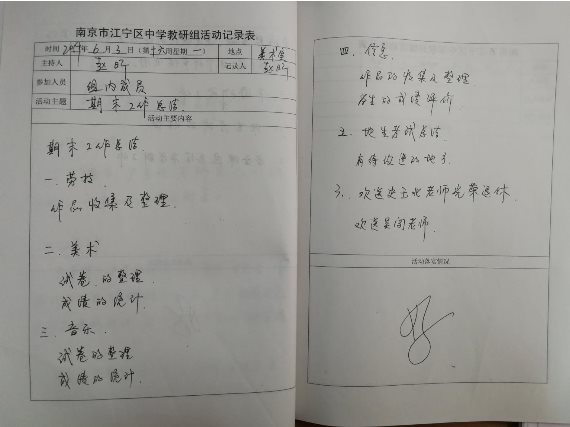 南京市江宁区中学教研组活动记录表
时间 2019年6月3日(第十六周星期一) 地点 美术室
主持人 赵昕 记录人 赵昕
参加人员 组内成员
活动主题 期末工作总结
活动主要内容
期末工作总结
一.劳技
作品收集及整理.
二.美术
试卷的整理
成绩的统计.
三.音乐.
试卷的整理
成绩的统计.
四.信息.
作品的收集及整理
学生的成绩评价
五.地生考试总结
有待改进的地方.
六.欢送史玉北老师光荣退休
欢送吴闯老师.
活动落实情况